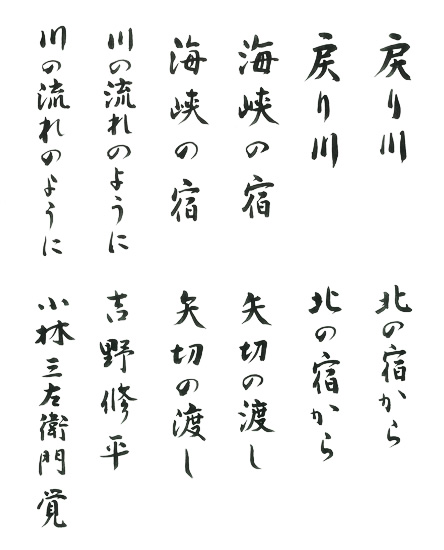 戻り川
戻り川
海峡の宿
海峡の宿
川の流れのように
川の流れのように
北の宿から
北の宿から
矢切の渡し
矢切の渡し
吉野修平
小林三左衛門覚